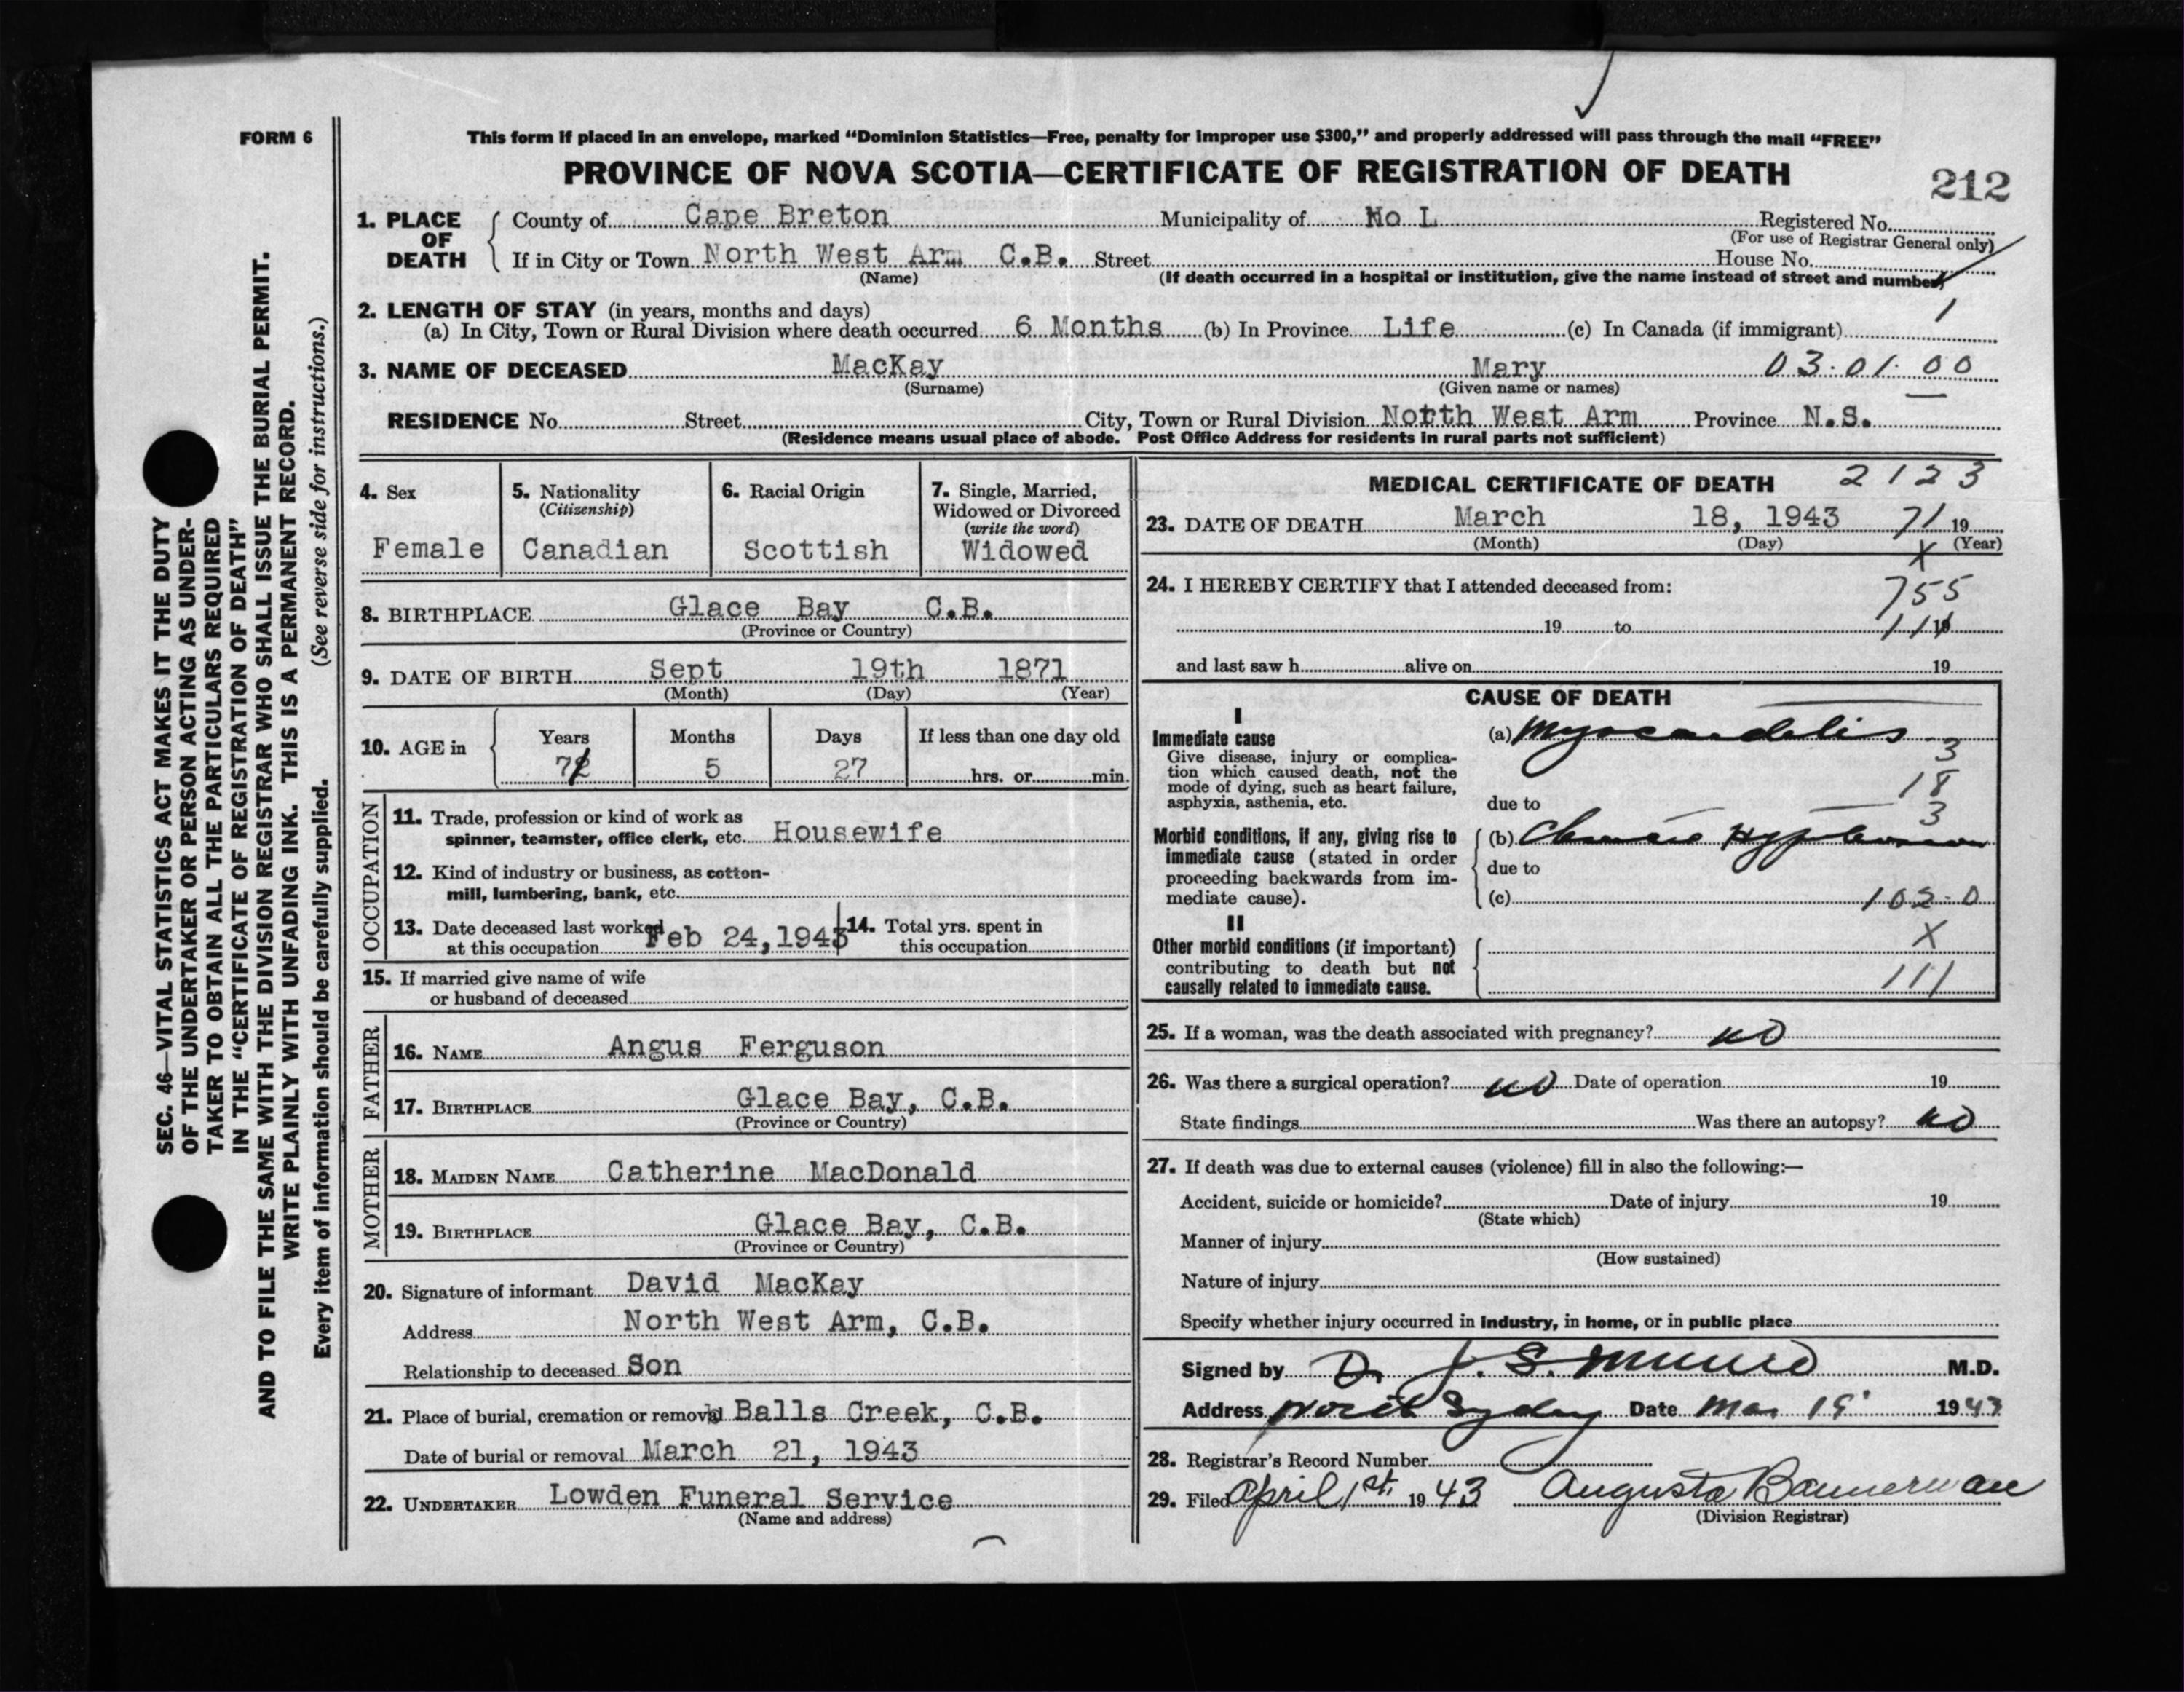 FORM 6
This form if placed in an envelope, marked “Dominion Statistics—Free, penalty for improper use $300,” and properly addressed will pass through the mail “FREE”
PROVINCE OF NOVA SCOTIA—CERTIFICATE OF REGISTRATION OF DEATH
212
1. PLACE OF DEATH
County of Cape Breton Municipality of No L Registered No.
(For use of Registrar General only)
If in City or Town North West Arm C.B. Street House No.
(Name) (If death occurred in a hospital or institution, give the name instead of street and number)
2. LENGTH OF STAY (in years, months and days)
1
(a) In City, Town or Rural Division where death occurred 6 Months (b) In Province Life (c) In Canada (if immigrant)
3. NAME OF DECEASED MacKay Mary 03.01.00
(Surname) (Given name or names)
RESIDENCE No. Street City, Town or Rural Division North West Arm Province N.S.
(Residence means usual place of abode. Post Office Address for residents in rural parts not sufficient)
4. Sex
Female
5. Nationality
(Citizenship)
Canadian
6. Racial Origin
Scottish
7. Single, Married,
Widowed or Divorced
(write the word)
Widowed
8. BIRTHPLACE Glace Bay C.B.
(Province or Country)
9. DATE OF BIRTH Sept 19th 1871
(Month) (Day) (Year)
10. AGE in
Years Months Days If less than one day old
71 5 27 hrs. or min.
OCCUPATION
11. Trade, profession or kind of work as
spinner, teamster, office clerk, etc. Housewife
12. Kind of industry or business, as cotton-
mill, lumbering, bank, etc.
13. Date deceased last worked
at this occupation Feb 24, 1943
14. Total yrs. spent in
this occupation
15. If married give name of wife
or husband of deceased
FATHER
16. NAME Angus Ferguson
17. BIRTHPLACE Glace Bay, C.B.
(Province or Country)
MOTHER
18. MAIDEN NAME Catherine MacDonald
19. BIRTHPLACE Glace Bay, C.B.
(Province or Country)
20. Signature of informant David MacKay
Address North West Arm, C.B.
Relationship to deceased Son
21. Place of burial, cremation or removal Balls Creek, C.B.
Date of burial or removal March 21, 1943
22. UNDERTAKER Lowden Funeral Service
(Name and address)
MEDICAL CERTIFICATE OF DEATH 2123
23. DATE OF DEATH March 18, 1943 71 19
(Month) (Day) (Year)
X
24. I HEREBY CERTIFY that I attended deceased from:
755
19 to 111 19
and last saw h alive on 19
CAUSE OF DEATH
I
Immediate cause
Give disease, injury or complica-
tion which caused death, not the
mode of dying, such as heart failure,
asphyxia, asthenia, etc.
(a) Myocardelis
3
18
due to
3
Morbid conditions, if any, giving rise to
immediate cause (stated in order
proceeding backwards from im-
mediate cause).
(b) Chronic Hypertension
due to
(c) 102-0
II
X
Other morbid conditions (if important)
contributing to death but not
causally related to immediate cause.
111
25. If a woman, was the death associated with pregnancy? no
26. Was there a surgical operation? no Date of operation 19
State findings Was there an autopsy? no
27. If death was due to external causes (violence) fill in also the following:—
Accident, suicide or homicide? Date of injury 19
(State which)
Manner of injury
(How sustained)
Nature of injury
Specify whether injury occurred in industry, in home, or in public place
Signed by Dr J. S. Munro M.D.
Address North Sydney Date Mar 19 1943
28. Registrar's Record Number
29. Filed April 1st. 1943 Augusta Bannerman
(Division Registrar)
SEC. 46—VITAL STATISTICS ACT MAKES IT THE DUTY
OF THE UNDERTAKER OR PERSON ACTING AS UNDER-
TAKER TO OBTAIN ALL THE PARTICULARS REQUIRED
IN THE “CERTIFICATE OF REGISTRATION OF DEATH”
AND TO FILE THE SAME WITH THE DIVISION REGISTRAR WHO SHALL ISSUE THE BURIAL PERMIT.
WRITE PLAINLY WITH UNFADING INK. THIS IS A PERMANENT RECORD.
Every item of information should be carefully supplied. (See reverse side for instructions.)